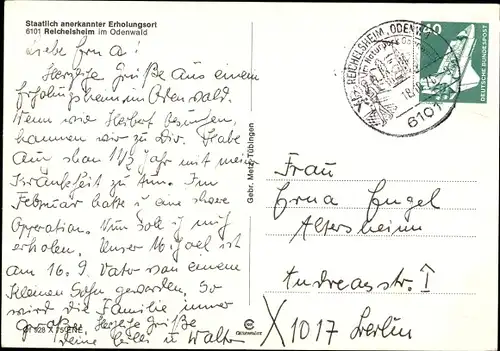 Staatlich anerkannter Erholungsort
6101 Reichelsheim im Odenwald
Liebe Erna!
Herzliche Grüße aus einem
Erholungsheim im Odenwald.
Wenn wir Herbert besuchen,
kommen wir zu Dir. Habe
auch schon 1 1/2 Jahr mit meiner
Krankheit zu tun. Im
Februar hatte i eine schwere
Operation. Nun soll i mich
erholen. Unser
am 16. 9. Vater von einem
kleinen Sohn geworden. So
wird die Familie immer
größer. Herzliche Grüße
Deine u Walter
Gebr. Metz, Tübingen
REICHELSHEIM, ODENWALD
6101
40
DEUTSCHE BUNDESPOST
Frau
Erna Engel
Altersheim
Andreasstr. I
X 1017 Berlin